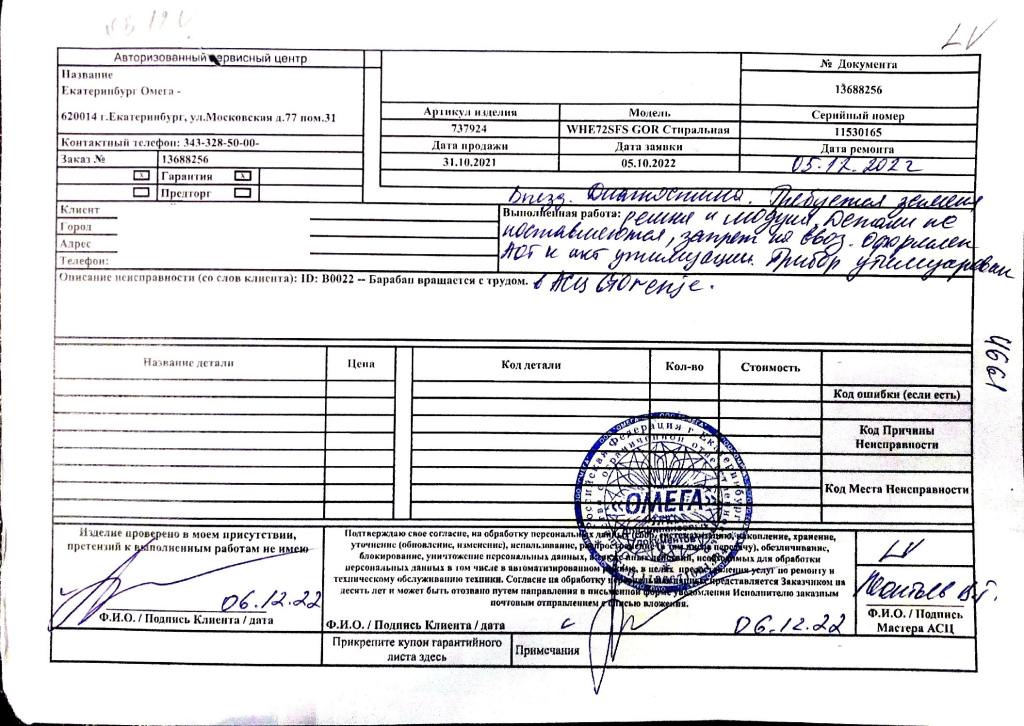 LV
Авторизованный сервисный центр
№ Документа
Название
Екатеринбург Омега -
13688256
620014 г.Екатеринбург, ул.Московская д.77 пом.31
Артикул изделия
Модель
Серийный номер
737924
WHE72SFS GOR Стиральная
11530165
Контактный телефон: 343-328-50-00-
Дата продажи
Дата заявки
Дата ремонта
Заказ №
13688256
31.10.2021
05.10.2022
05.12.2022
x
Гарантия
x
Предторг
Выезд. Диагностика. Требуется замена
Клиент
Выполненная работа:
ремня и модуля. Детали не
Город
поставляются, запрет на ввоз. Оформлен
Адрес
АОТ и акт утилизации. Прибор утилизирован
Телефон:
Описание неисправности (со слов клиента): ID: B0022 -- Барабан вращается с трудом.
в АСЦ Gorenje.
4661
Название детали
Цена
Код детали
Кол-во
Стоимость
Код ошибки (если есть)
Код Причины
Неисправности
Код Места Неисправности
Российская Федерация г Екатеринбург
«ОМЕГА»
Изделие проверено в моем присутствии,
претензий к выполненным работам не имею
06.12.22
Ф.И.О. / Подпись Клиента / дата
Подтверждаю свое согласие, на обработку персональных данных (сбор, систематизацию, накопление, хранение,
уточнение (обновление, изменение), использование, распространение (в том числе передачу), обезличивание,
блокирование, уничтожение персональных данных, а также иных действий, необходимых для обработки
персональных данных в том числе в автоматизированном режиме, в целях предоставления услуг по ремонту и
техническому обслуживанию техники. Согласие на обработку персональных данных представляется Заказчиком на
десять лет и может быть отозвано путем направления в письменной форме уведомления Исполнителю заказным
почтовым отправлением с описью вложения.
Ф.И.О. / Подпись Клиента / дата
06.12.22
LV
Леонтьев В.Г.
Ф.И.О. / Подпись
Мастера АСЦ
Прикрепите купон гарантийного
листа здесь
Примчания